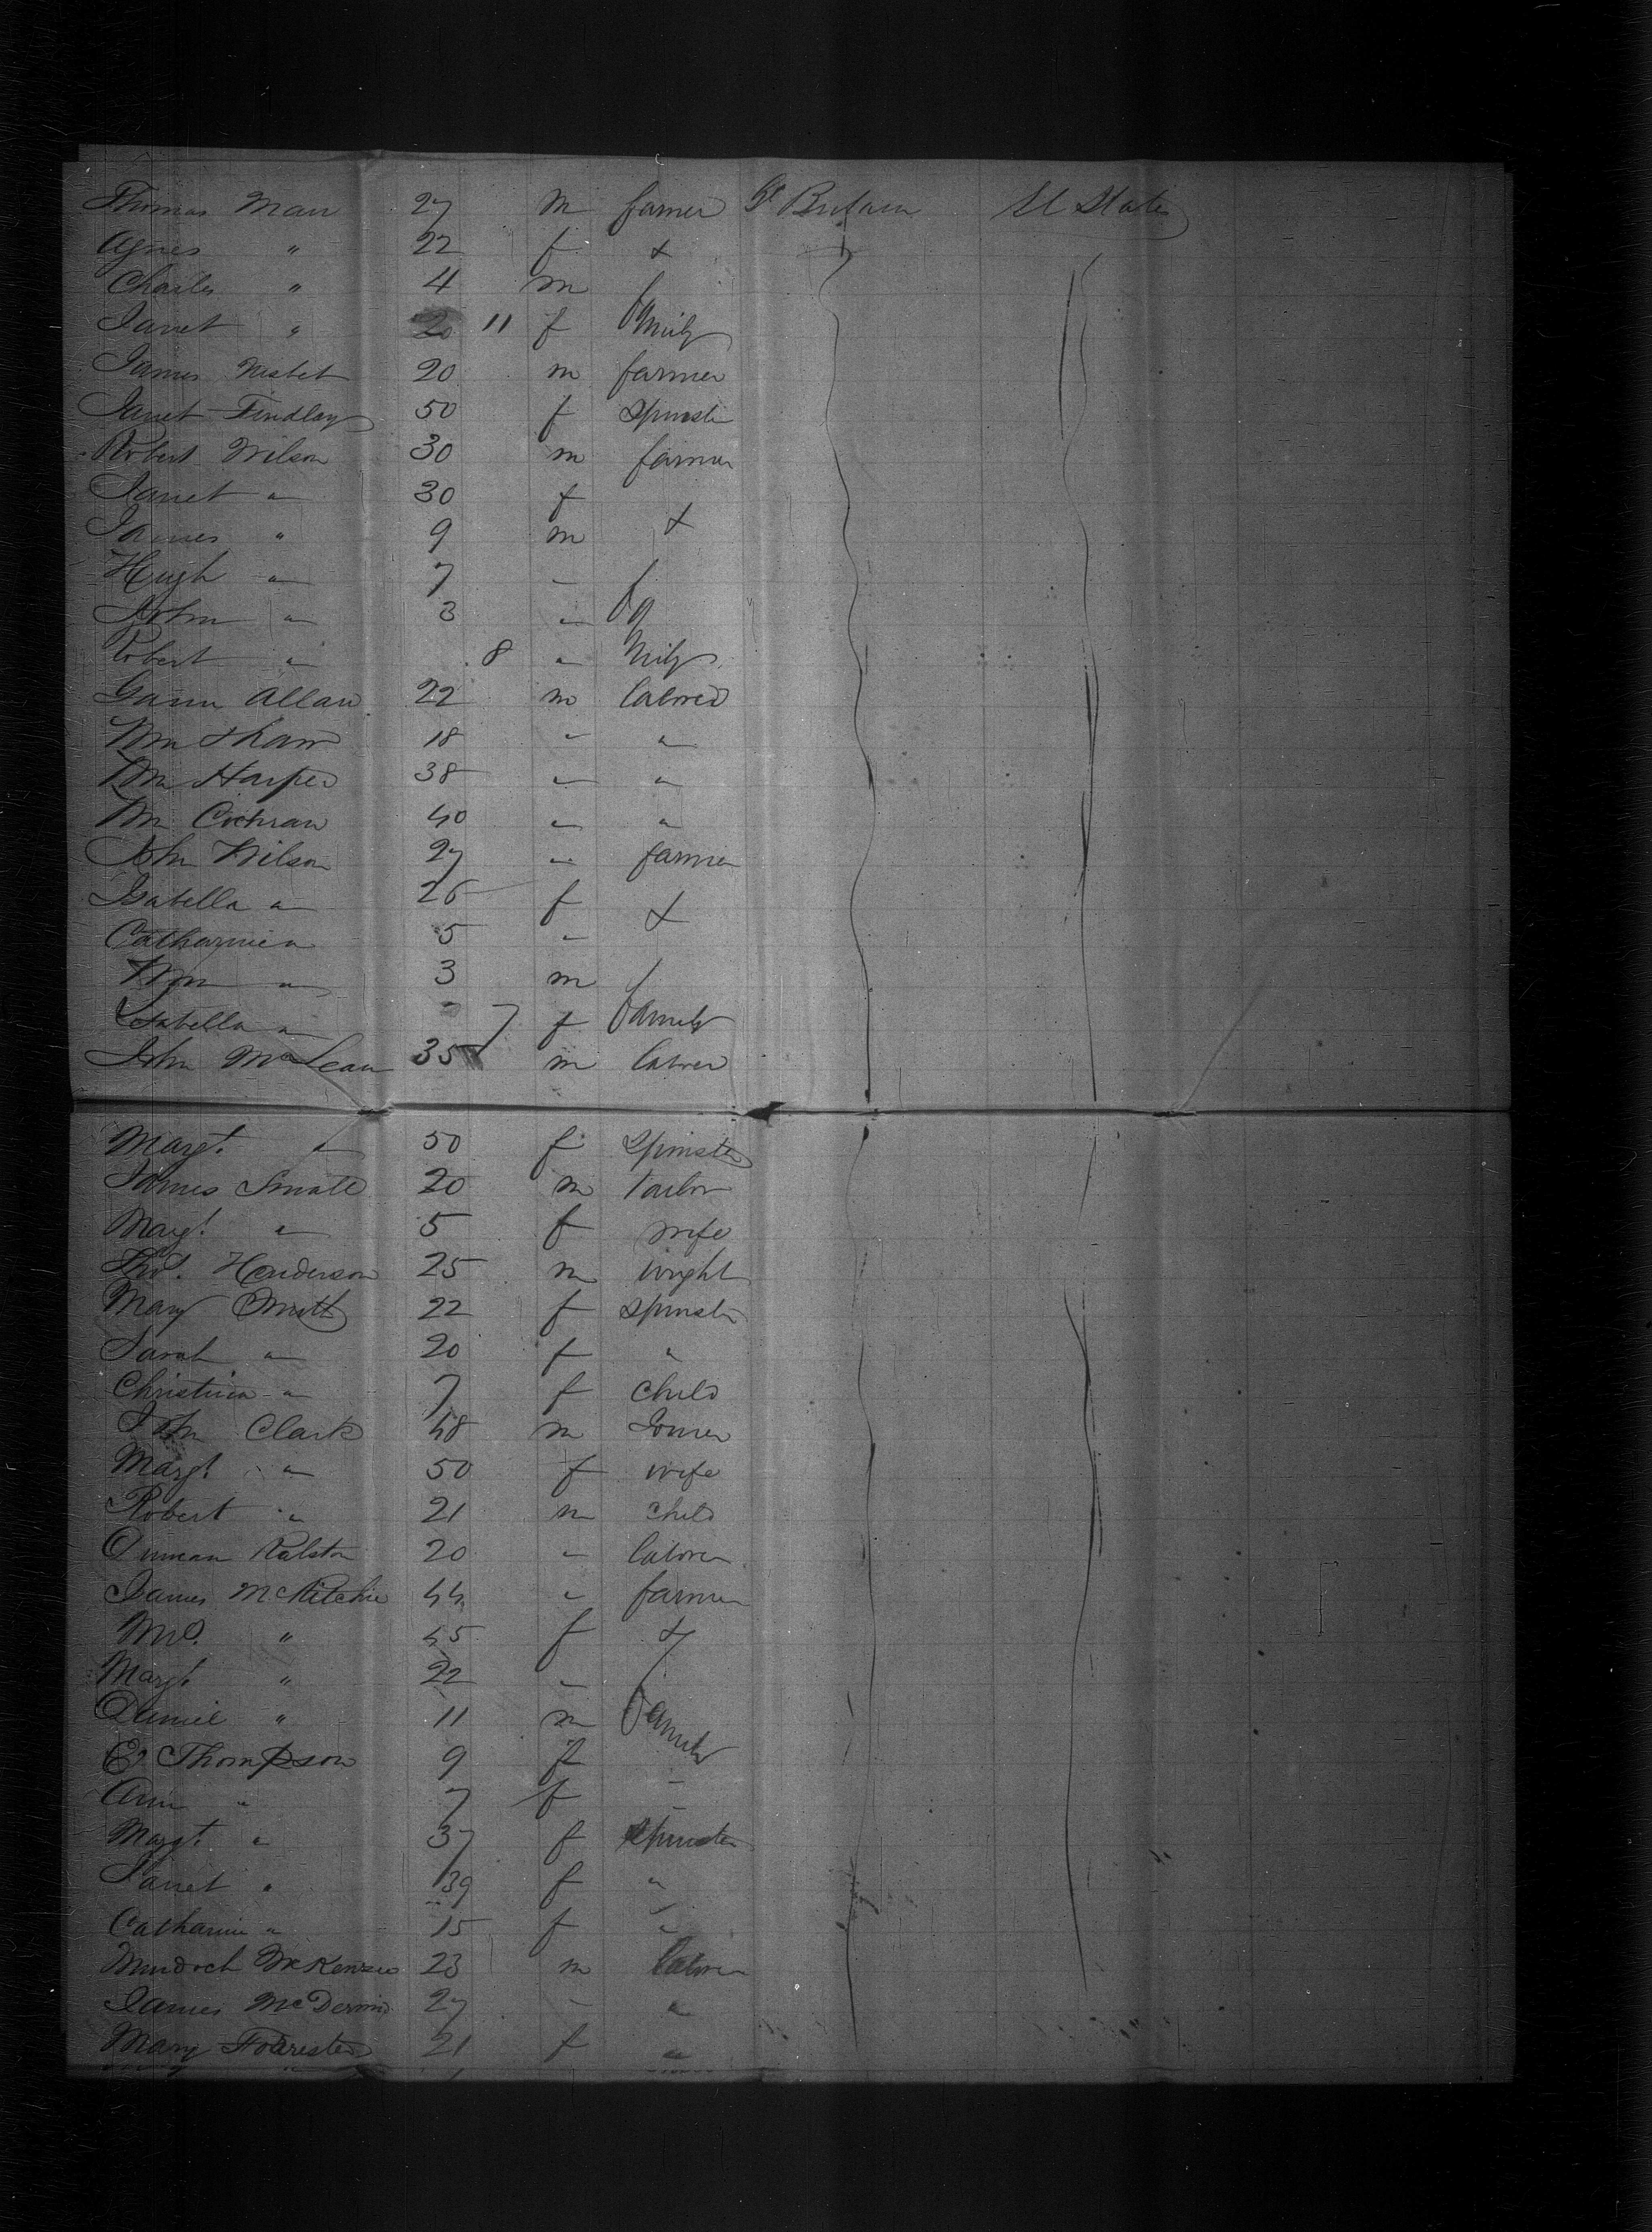 Thomas Man 27 m farmer Gt Britain U States
Agnes " 22 f &
Charles " 4 m
Janet " 11 f family
James Nisbet 20 m farmer
Janet Findlay 50 f Spinster
Robert Wilson 30 m farmer
Janet " 30 f
James " 9 m &
Hugh " 7 "
John " 3 " fa
Robert " 8 " mily
Gavin Allan 22 m laborer
Wm Sham 18 " "
Wm Harper 38 " "
Wm Cochran 40 " "
John Wilson 27 " farmer
Isabella " 26 f &
Catharine " 5 "
Wm " 3 m
Isabella " 7 f family
John McLean 35 m laborer
Margt. " 50 f Spinster
James Smale 20 m Tailor
Margt. " 5 f wife
Thos. Henderson 25 m wright
Mary Smith 22 f Spinster
Sarah " 20 f "
Christina " 7 f child
John Clark 48 m Joiner
Margt " 50 f wife
Robert " 21 m child
Duncan Ralston 20 " laborer
James McRitchie 44 " farmer
Mrs. " 45 f &
Margt. " 22 "
Daniel " 11 m family
E. Thompson 9 f
Ann " 7 f "
Margt. " 37 f Spinster
Janet " 39 f "
Catharine " 15 f "
Murdoch McKenzie 23 m laborer
James McDermid 27 " "
Mary Forrester 21 f "